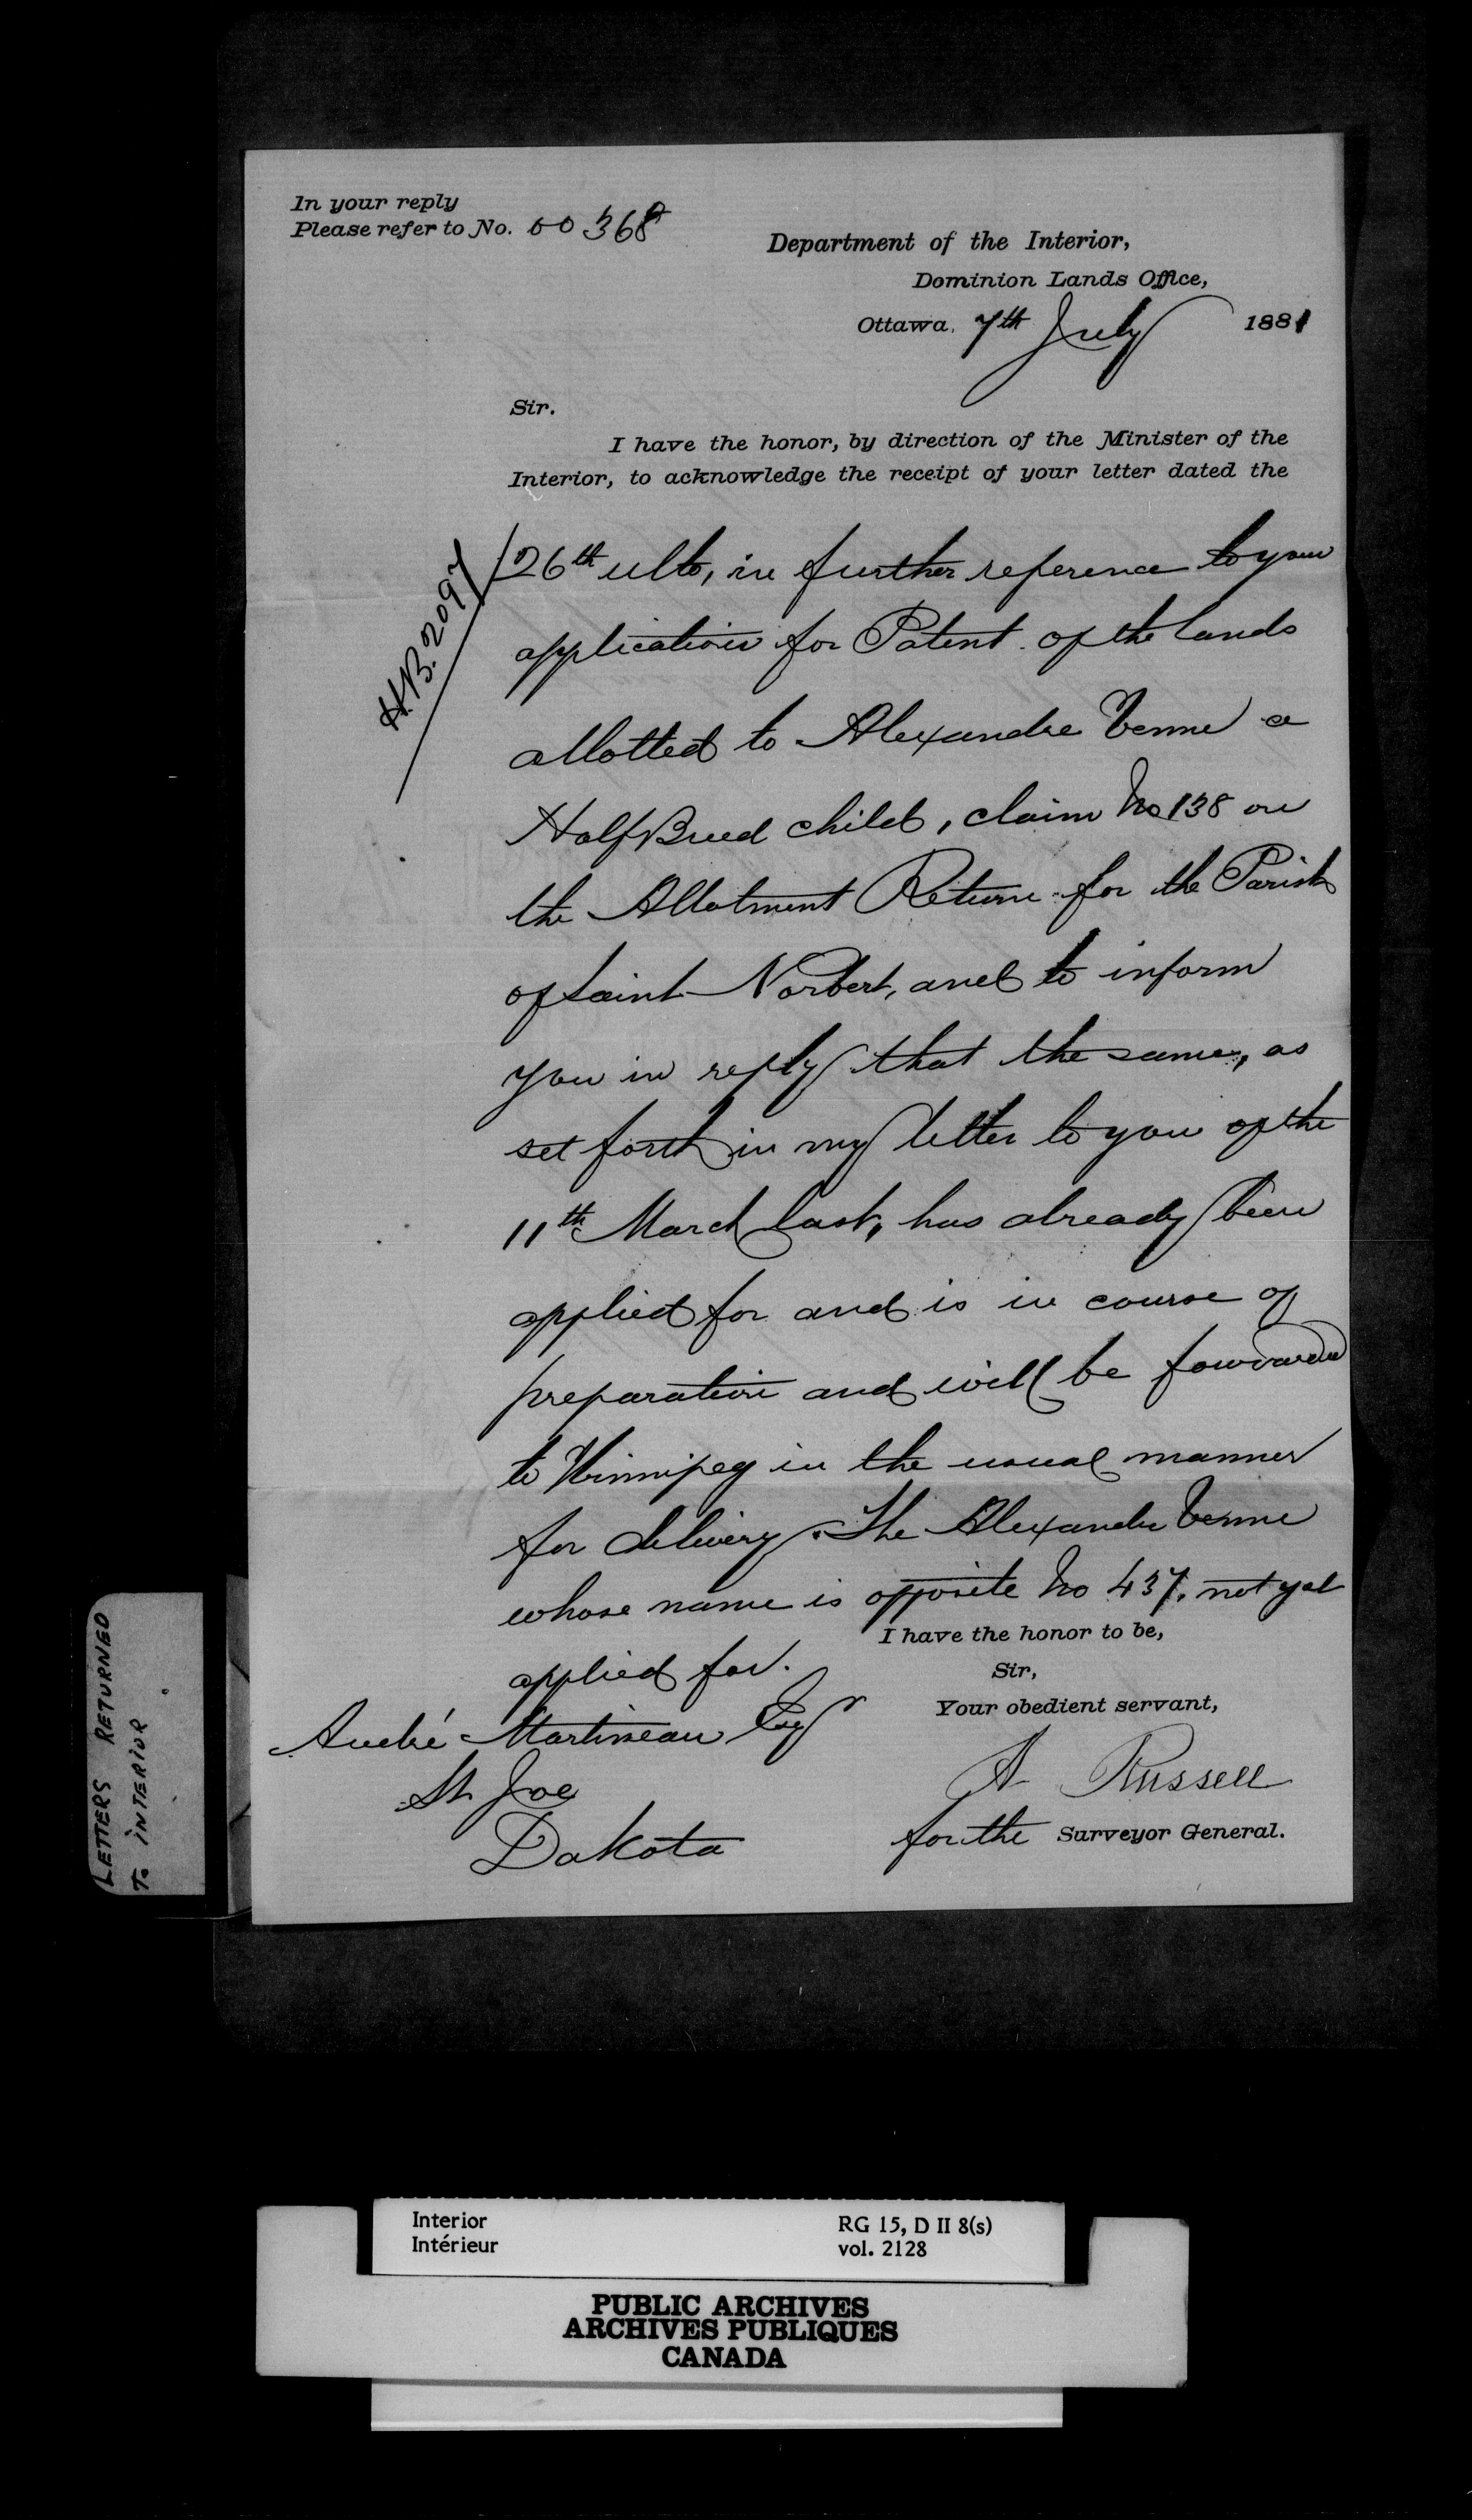 In your reply
Please refer to No. 60368
Department of the Interior,
Dominion Lands Office,
Ottawa, 7th July 1881
Sir.
I have the honor, by direction of the Minister of the
Interior, to acknowledge the receipt of your letter dated the
H.B. 2097
26th ulto, in further reference to your
application for Patent of the lands
allotted to Alexandre Venne a
Half Breed child, claim No 138 on
the Allotment Return for the Parish
of Saint Norbert, and to inform
you in reply that the same, as
set forth in my letter to you of the
11th March last, has already been
applied for and is in course of
preparation and will be forwarded
to Winnipeg in the usual manner
for delivery. The Alexandre Venne
whose name is opposite No 437, not yet
applied for.
I have the honor to be,
Sir,
Your obedient servant,
A Russell
for the Surveyor General.
André Martineau Esqr
St Joe
Dakota
LETTERS RETURNED
To INTERIOR
Interior RG 15, D II 8(s)
Intérieur vol. 2128
PUBLIC ARCHIVES
ARCHIVES PUBLIQUES
CANADA